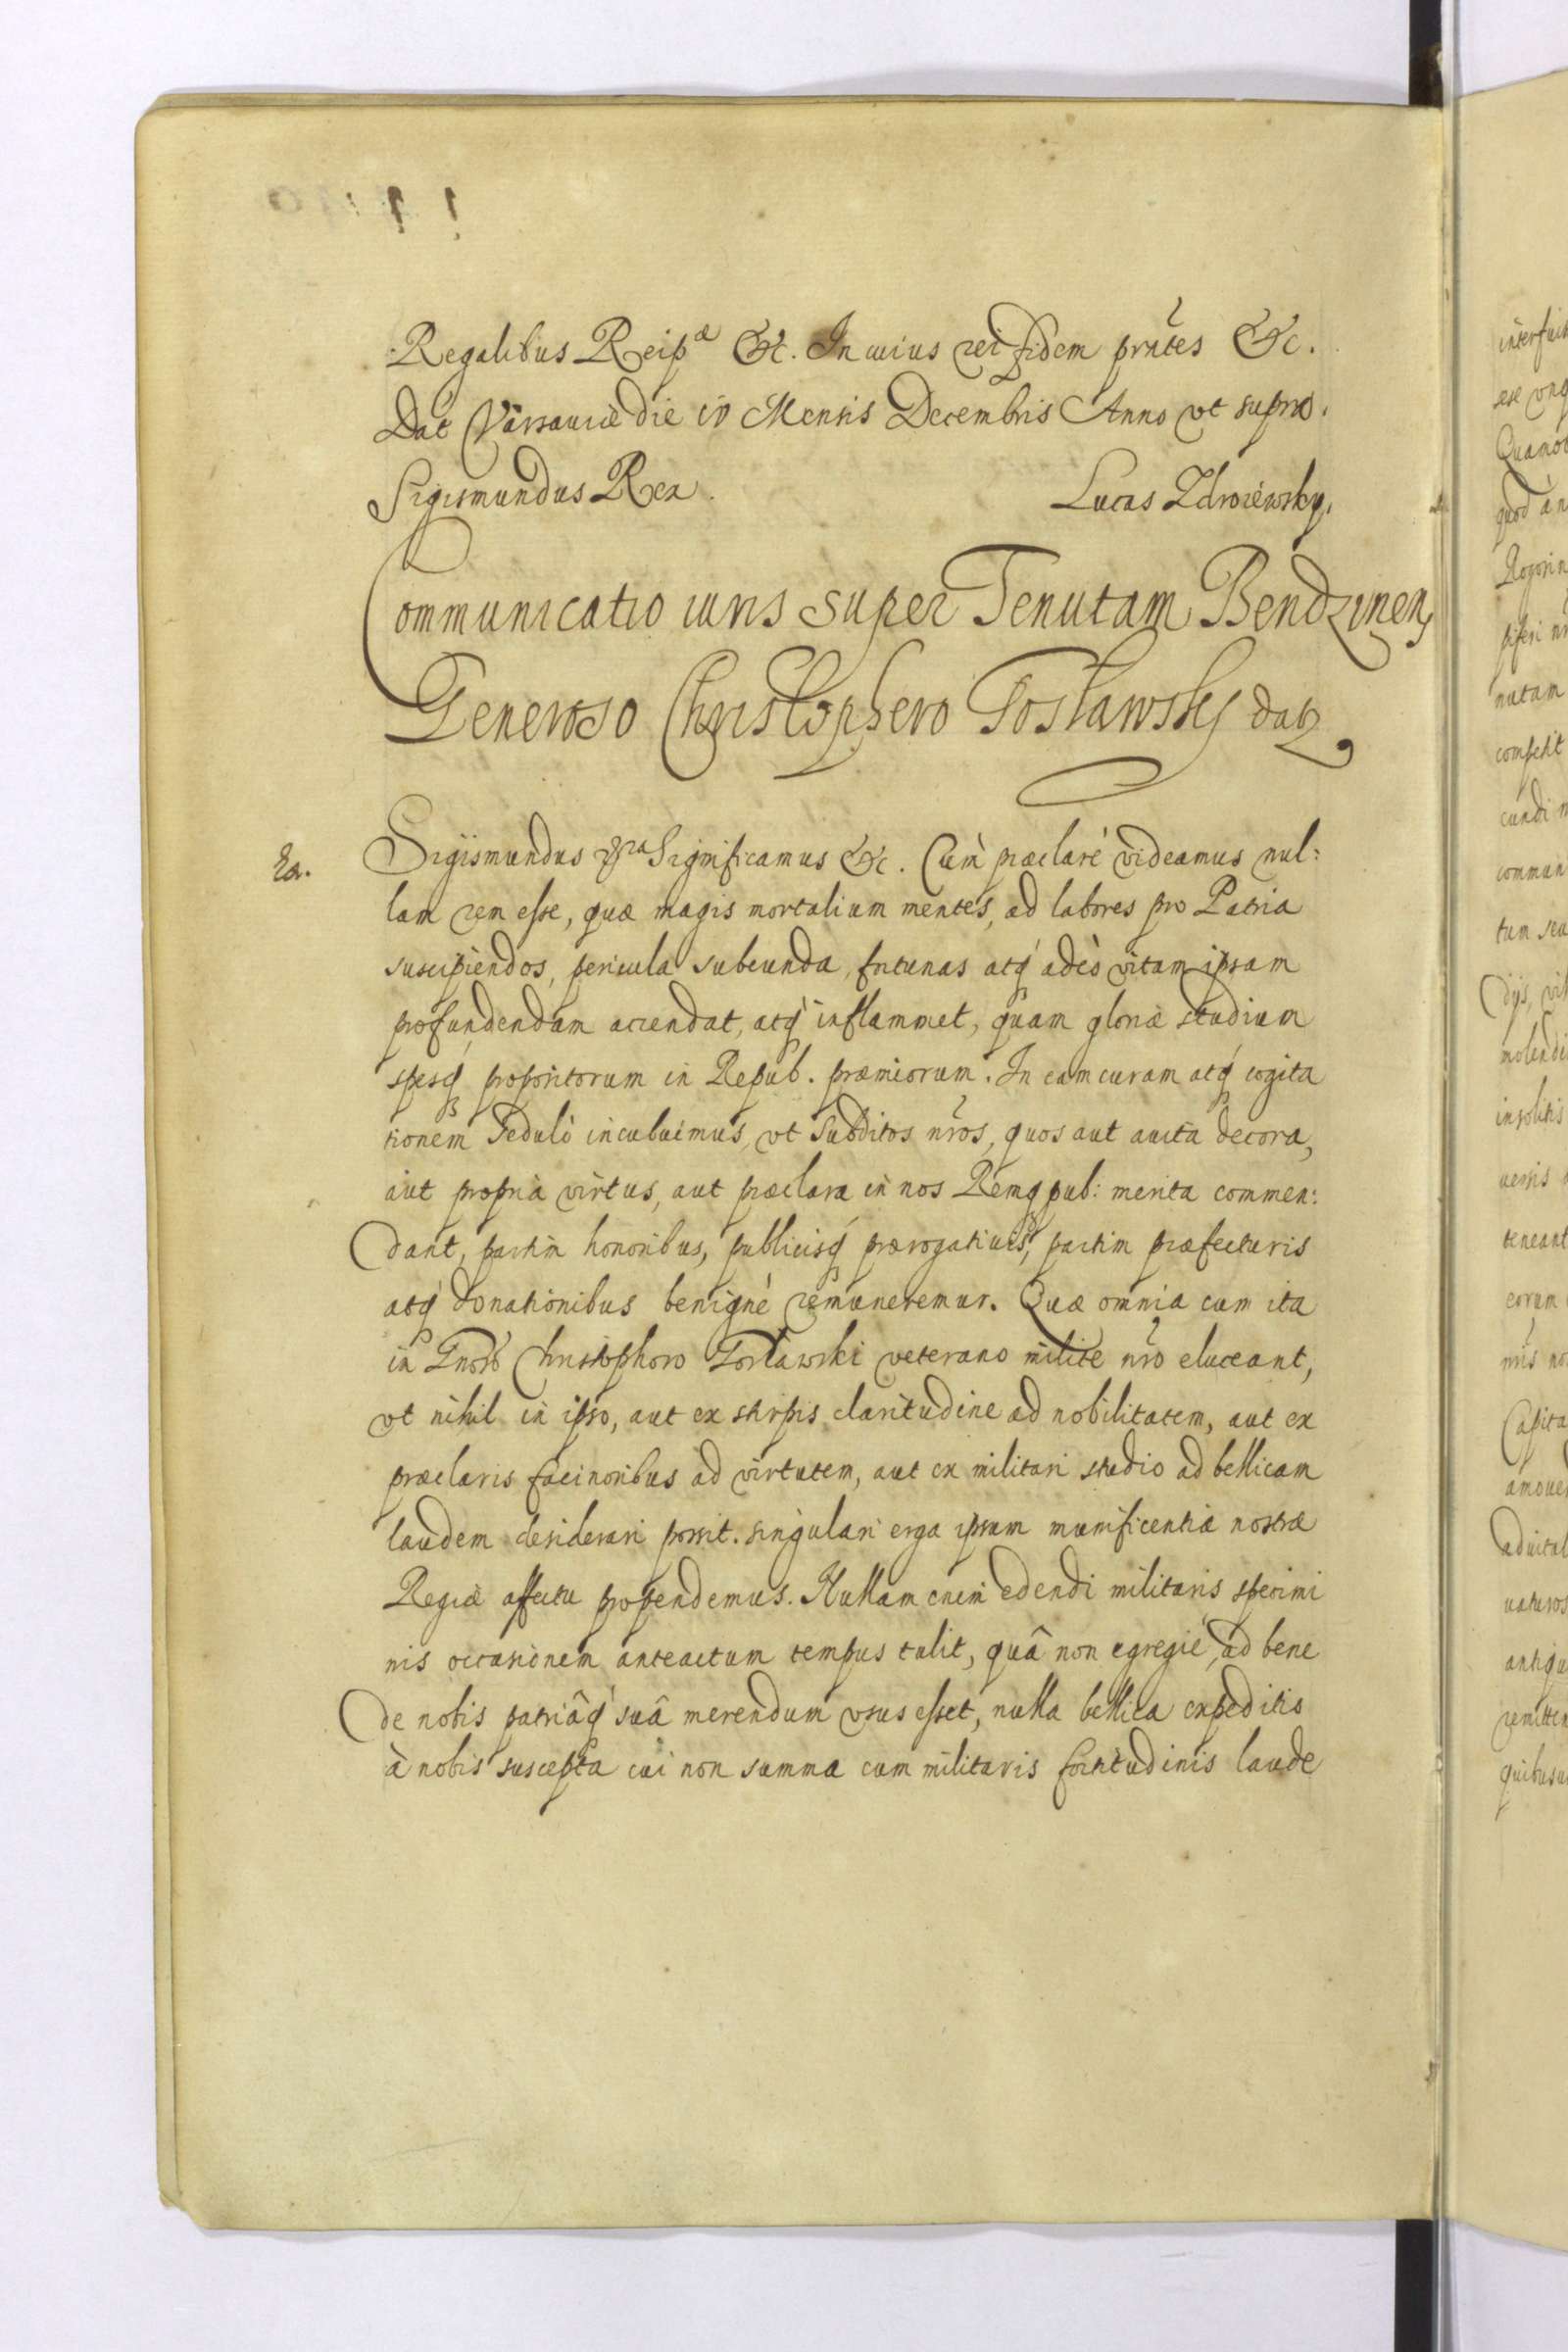 Regalibus Reipæ &c. In cuius rei fidem prñtes &c.
Dat Varsauiæ die iv Mensis Decembris Anno vt supra.
Sigismundus Rex.
Lucas Zdroiewsky.
Communicatio iuris super Tenutam Bendzinen
Generoso Christophero Toslawsky dat
Ex.
Sigismundus &ra Significamus &c. Cum præclarè videamus nul:
lam rem esse, quæ magis mortalium mentes, ad labores pro Patria
suscipiendos, pericula subeunda, fortunas atq́ adeò vitam ipsam
profundendam accendat, atq́ inflammet, quam gloriæ studium
spesq́ propositorum in Repub. præmiorum. In eam curam atq́ cogita
tionem sedulò incubuimus, vt subditos nr̃os, quos aut auita decora,
aut propria virtus, aut præclara in nos Remq pub: merita commen:
dant, partim honoribus, publicisq́ prærogatiuis, partim præfecturis
atq́ donationibus benignè remuneremur. Quæ omnia cum ita
in Gnoso Christophoro Toslawski veterano milite nr̃o eluceant,
vt nihil in ipso, aut ex stirpis claritudine ad nobilitatem, aut ex
præclaris facinoribus ad virtutem, aut ex militari studio ad bellicam
laudem desiderari possit. singulari erga ipsum munificentiæ nostræ
Regiæ affectu propendemus. Nullam enim edendi militaris specimi
nis occasionem anteactum tempus tulit, quâ non egregiè, ad bene
de nobis patriâq́ suâ merendum vsus esset, nulla bellica expeditio
à nobis suscepta cui non summa cum militaris fortitudinis laude